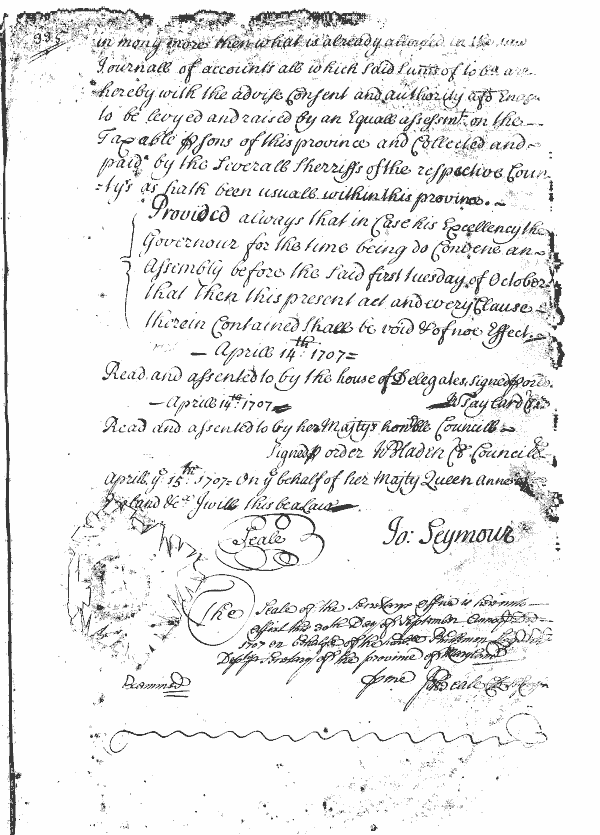 995
in mony more then what is already allowed in the said
Journall of accounts all which said sums of toba: are
hereby with the advise Consent and authority afsd Enac
to be levyed and raised by an Equall assessmt. on the
Taxable psons of this province and Collected and
paid by the Severall Sherriffs of the respective Coun
=tys as hath been usuall within this province.
Provided always that in Case his Excellency the
Governour for the time being do Convene an
Assembly before the said first tuesday of October
that Then this present act and every Clause
therein Contained Shall be void & of noe Effect.
Aprill 14th: 1707=
Read and assented to by the house of Delegates, signed p ord.
Aprill 14th 1707
W Taylard
Read and assented to by her Majtys honble Councill
Signed p order W Bladen Cl Councill
Aprill ye 15th: 1707= On ye behalf of her Majty Queen Anne of
&ca I will this be a Law
Seale
Jo: Seymour
The Seale of the Secretarys office is hereunto
affixt this 20th Day of September
1707 on behalfe of the
Secretary of the province of Maryland
Examined
p me Beale